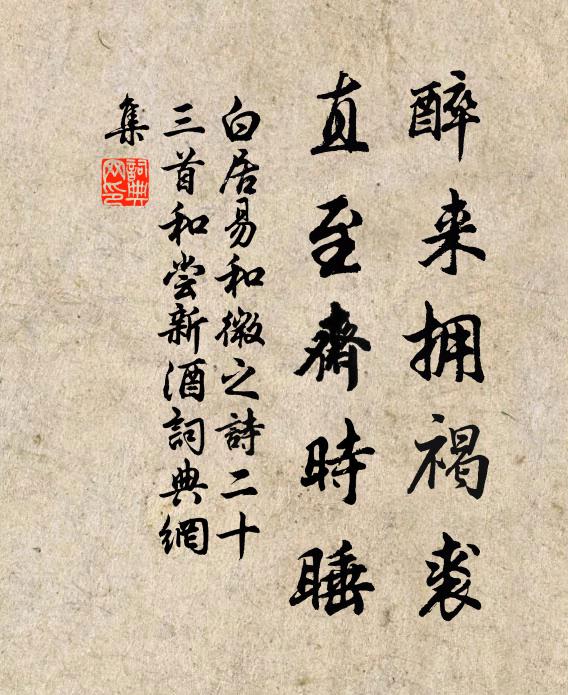 醉来拥褐裘
直至齋時睡
白居易和微之詩二十
三首和尝新酒詞典網
集
詞典
网印